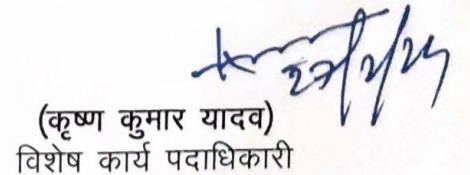 (कृष्ण कुमार यादव)
विशेष कार्य पदाधिकारी